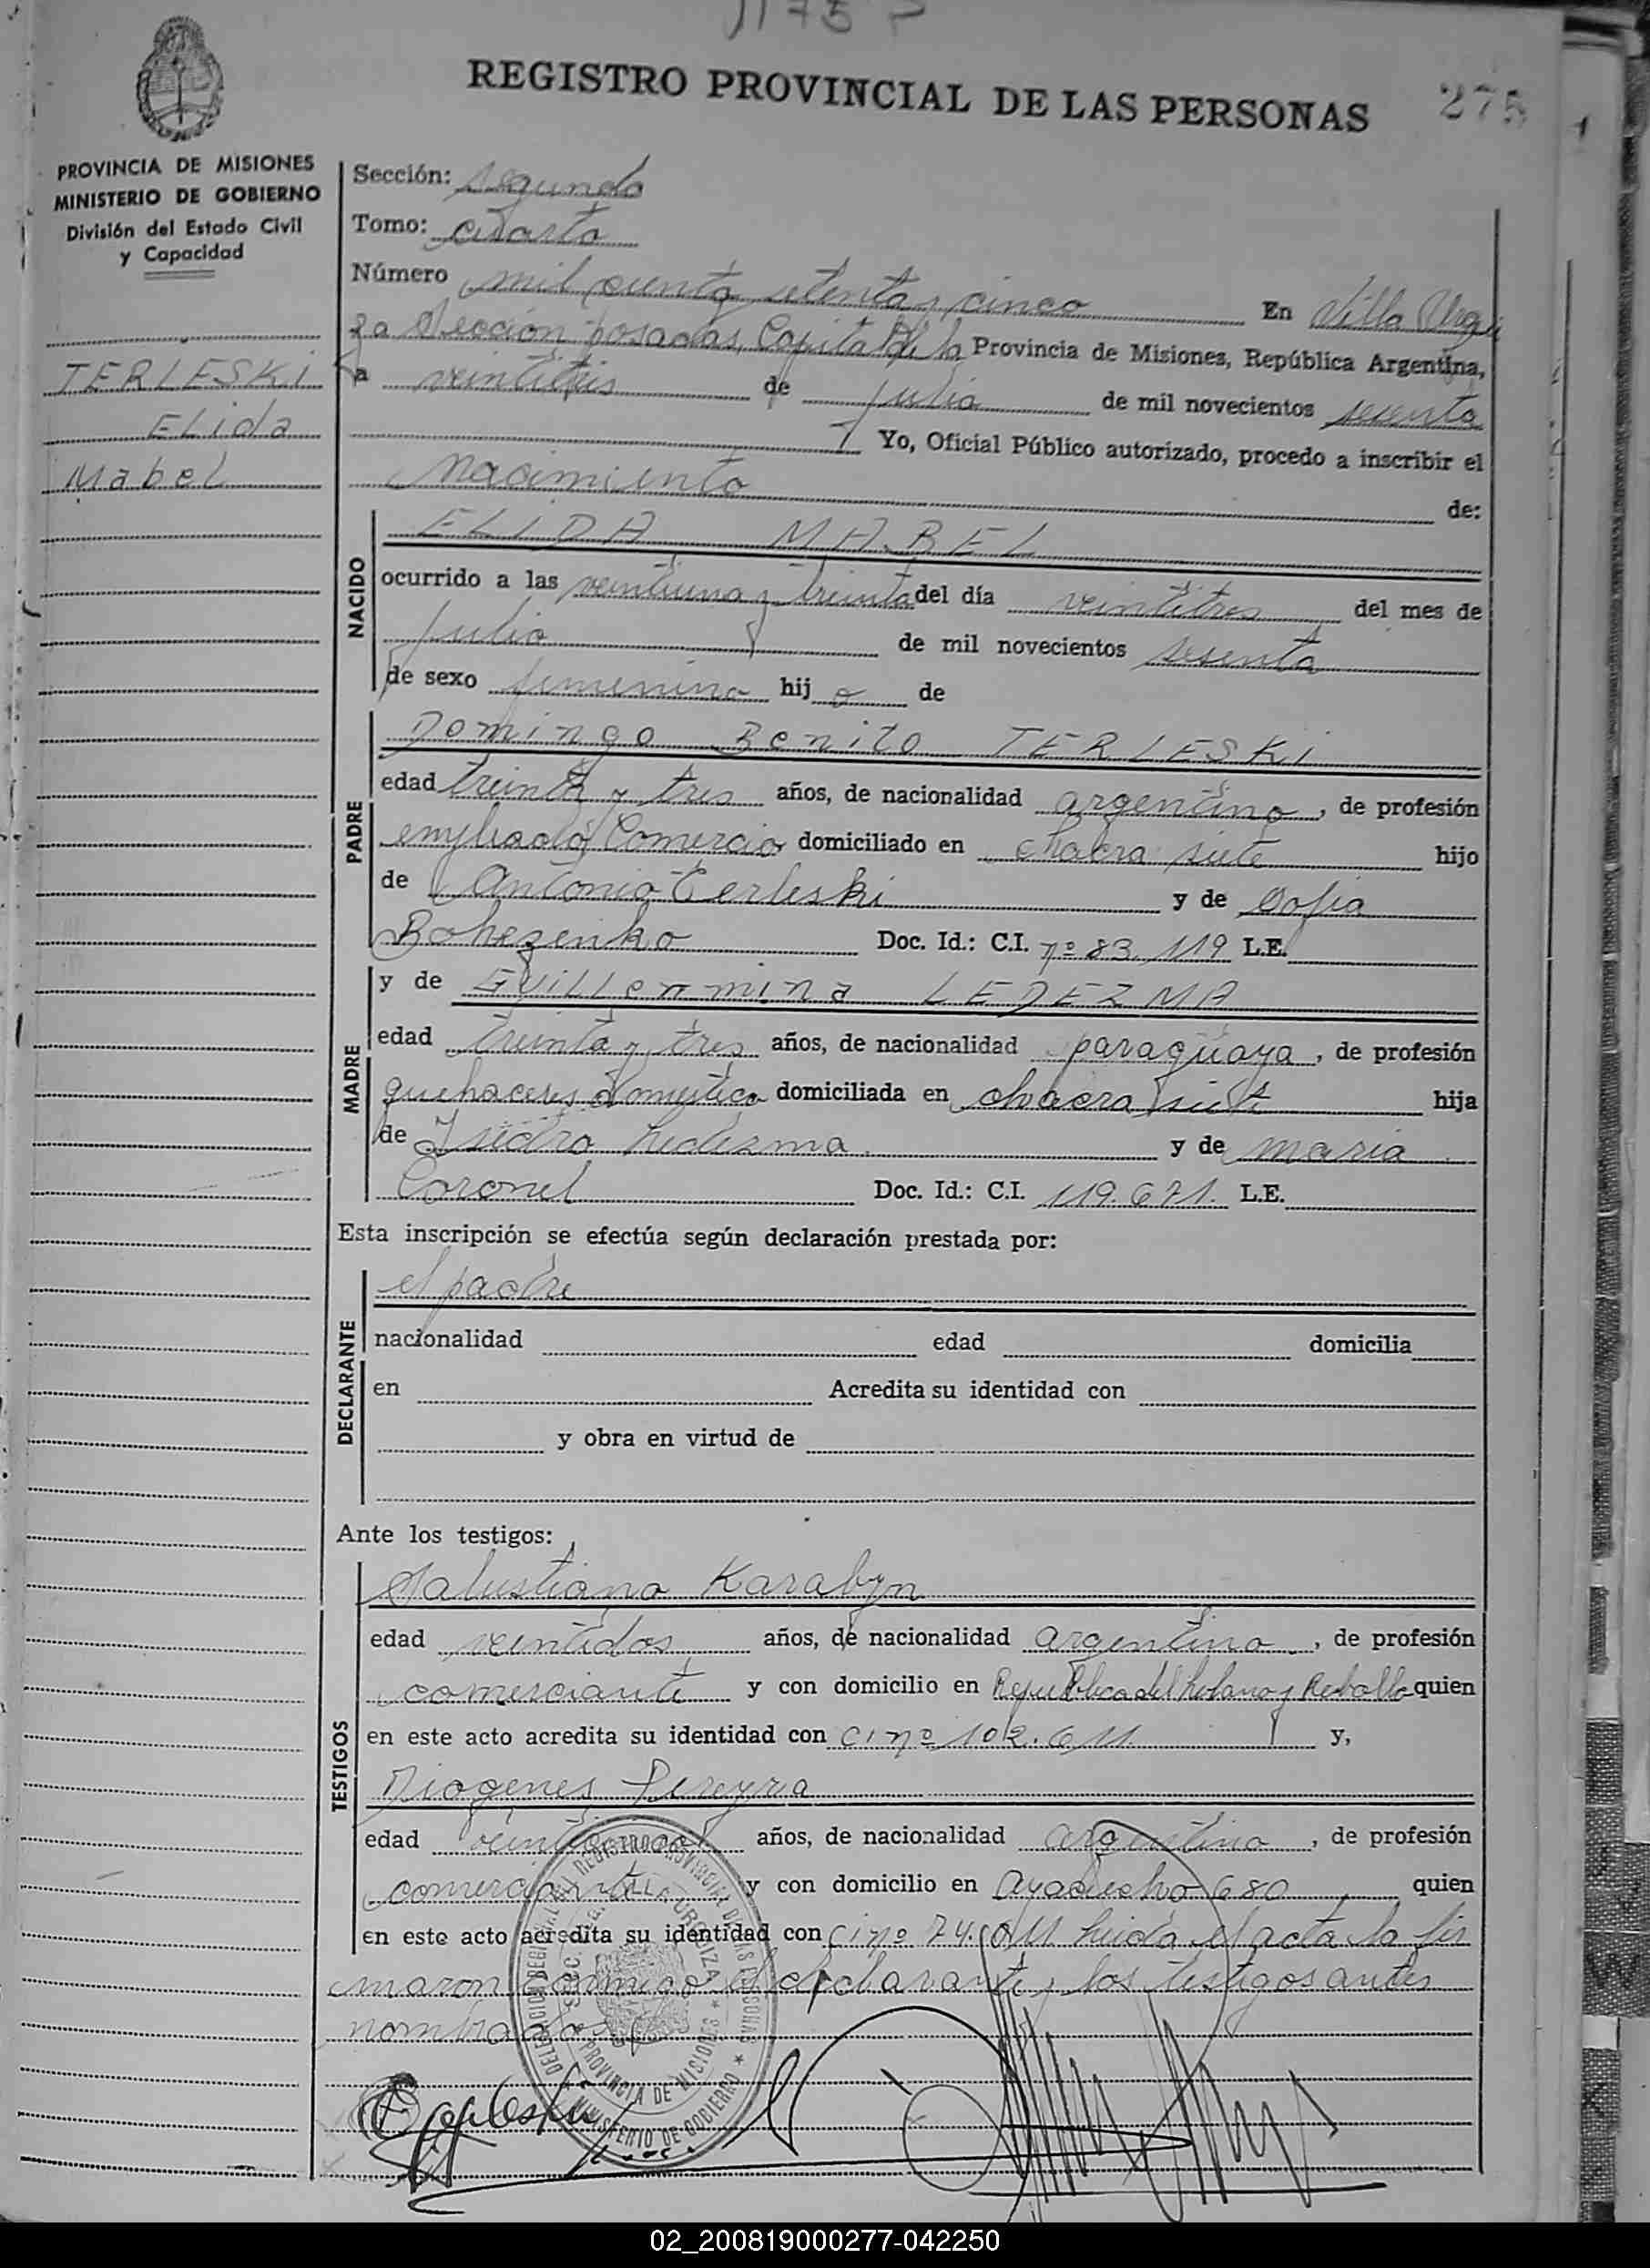 1175
REGISTRO PROVINCIAL DE LAS PERSONAS
275
PROVINCIA DE MISIONES
MINISTERIO DE GOBIERNO
División del Estado Civil
y Capacidad
TERLESKI
ELida
MabEL
Sección: segunda
Tomo: cuarto
Número mil ciento setenta y cinco En Villa Urqui
za Sección posadas, Capital de la Provincia de Misiones, República Argentina,
a de julio de mil novecientos sesenta
Yo, Oficial Público autorizado, procedo a inscribir el
Nacimiento de:
NACIDO
ELIDA MABEL
ocurrido a las veintiuna y treinta del día veintitres del mes de
julio de mil novecientos sesenta
de sexo femenino hij a de
PADRE
Domingo Benito TERLESKi
edad treinta y tres años, de nacionalidad argentino, de profesión
empleado Comercio domiciliado en chacra siete hijo
de Antonio Terleski y de Sofia
Bohezenko Doc. Id.: C.I. nº 83.119 L.E.
MADRE
y de GuiLLermina LEDEZMA
edad treinta y tres años, de nacionalidad paraguaya, de profesión
quehaceres domestico domiciliada en chacra siete hija
de Isidro Ledezma y de maria
Coronel Doc. Id.: C.I. 119.671. L.E.
Esta inscripción se efectúa según declaración prestada por:
DECLARANTE
el padre
nacionalidad edad domicilia
en Acredita su identidad con
y obra en virtud de
Ante los testigos:
TESTIGOS
Salustiano Karabyn
edad veintidos años, de nacionalidad argentino, de profesión
comerciante y con domicilio en Republica del Libano y Rebollo quien
en este acto acredita su identidad con CI nº 102.611 y,
Diogenes Pereyra
edad años, de nacionalidad argentino, de profesión
comerciante y con domicilio en ayacucho 680 quien
en este acto acredita su identidad con Ci nº 74. Leida el acta la fir
maron conmigo el declarante y los testigos antes
nombrados
REGISTRO PROVINCIAL DE LAS PERSONAS
PROVINCIA DE MICIONES
MINISTERIO DE GOBIERNO
02_200819000277-042250